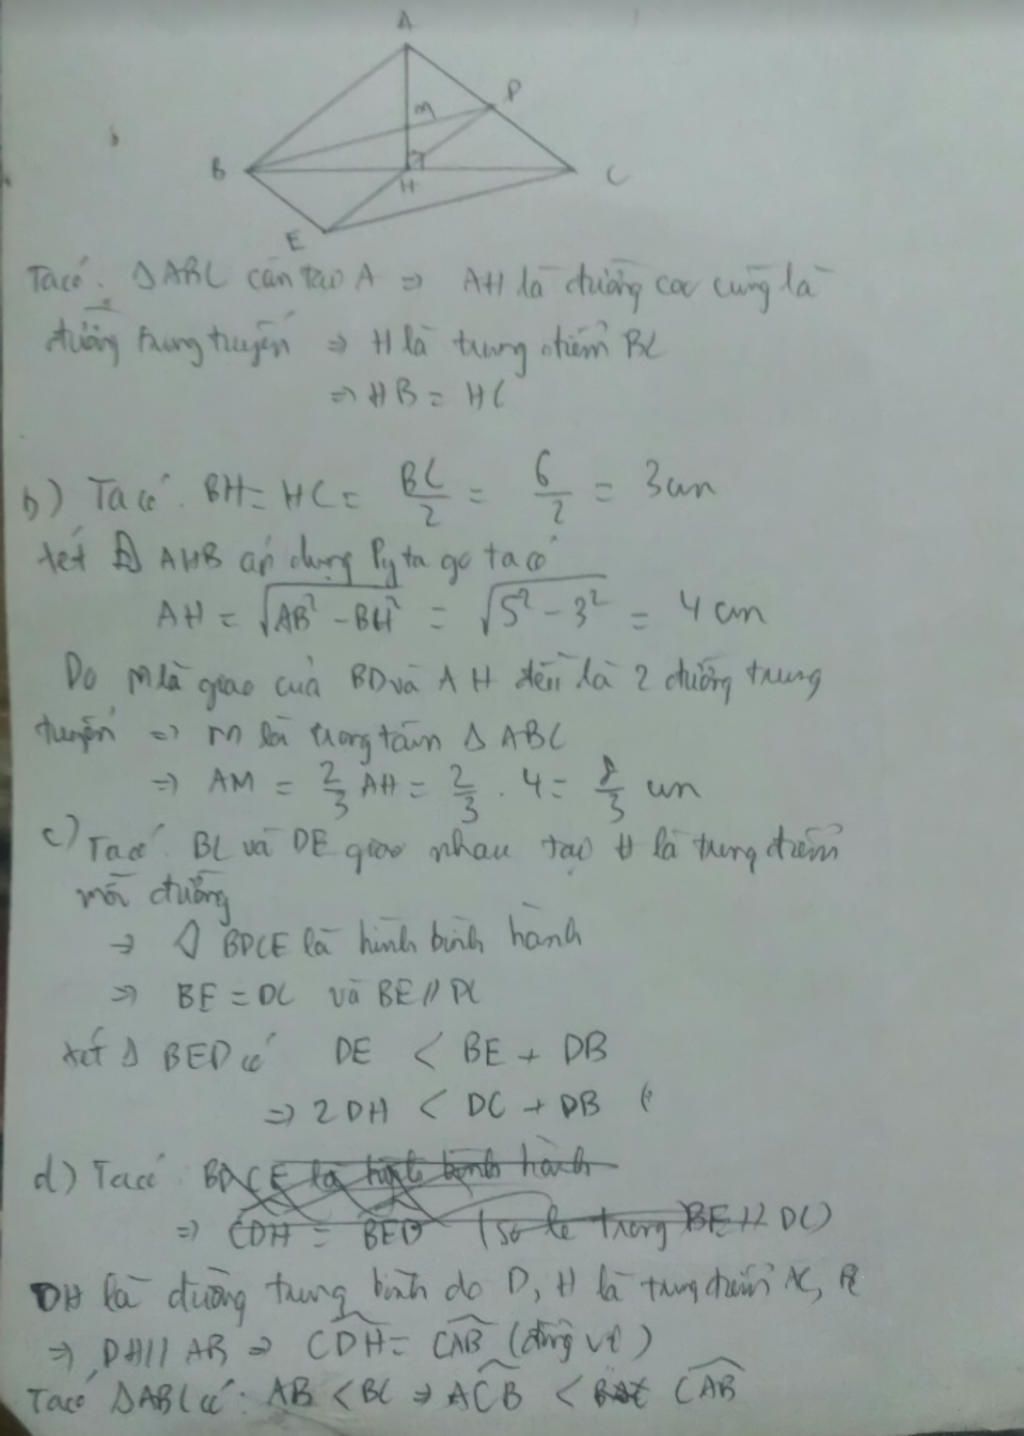 A
M
D
B
H
C
E
Ta có: Δ ABC cân tại A ⇒ AH là đường cao cũng là
đường trung tuyến ⇒ H là trung điểm BC
⇒ HB = HC
b) Ta có: BH = HC = BC/2 = 6/2 = 3cm
Xét Δ AHB áp dụng Pytago ta có
AH = √(AB² - BH²) = √(5² - 3²) = 4 cm
Do M là giao của BD và AH đều là 2 đường trung
tuyến ⇒ M là trọng tâm Δ ABC
⇒ AM = 2/3 AH = 2/3 . 4 = 8/3 cm
c) Ta có: BC và DE giao nhau tại H là trung điểm
mỗi đường
⇒ ◊ BDCE là hình bình hành
⇒ BE = DC và BE // DC
Xét Δ BED có DE < BE + DB
⇒ 2DH < DC + DB (
d) Ta có: BDCE là hình bình hành
⇒ CDH = BED (so le trong BE // DC)
DH là đường trung bình do D, H là trung điểm AC, B
⇒ DH // AB ⇒ CDH = CAB (đồng vị)
Ta có Δ ABC có: AB < BC ⇒ ACB < CAB